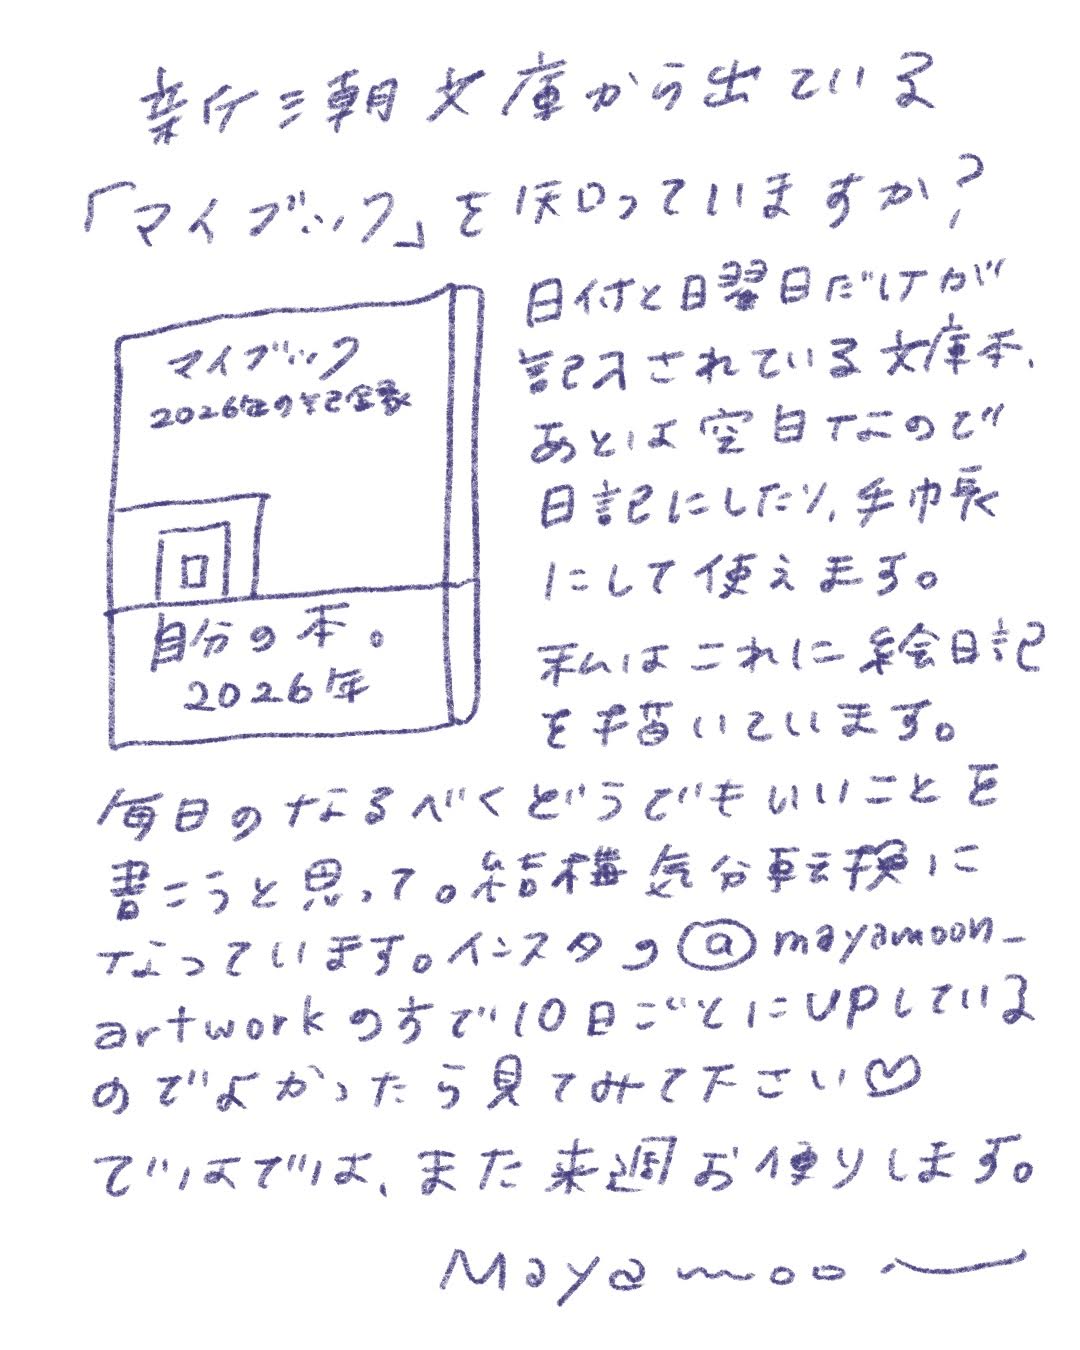 新潮文庫から出ている
「マイブック」を知っていますか?
マイブック
2026年の記録
自分の本。
2026年
日付と日曜日だけが
記入されている文庫本、
あとは空白なので
日記にしたり、手帳
にして使えます。
私はこれに絵日記
を描いています。
毎日のなるべくどうでもいいことを
書こうと思って。結構気分転換に
なっています。インスタの@mayamoon_
artworkの方で10日ごとにUPしている
のでよかったら見てみて下さい♡
ではでは、また来週お便りします。
Mayamoon